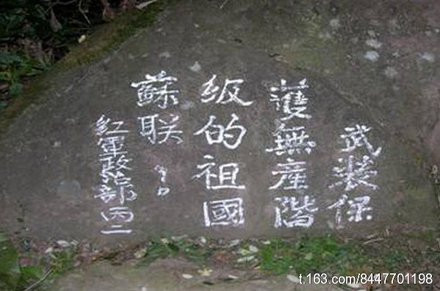 武装保
護無產階
级的祖國
蘇联
红軍政部丙二
t.163.com/8447701198